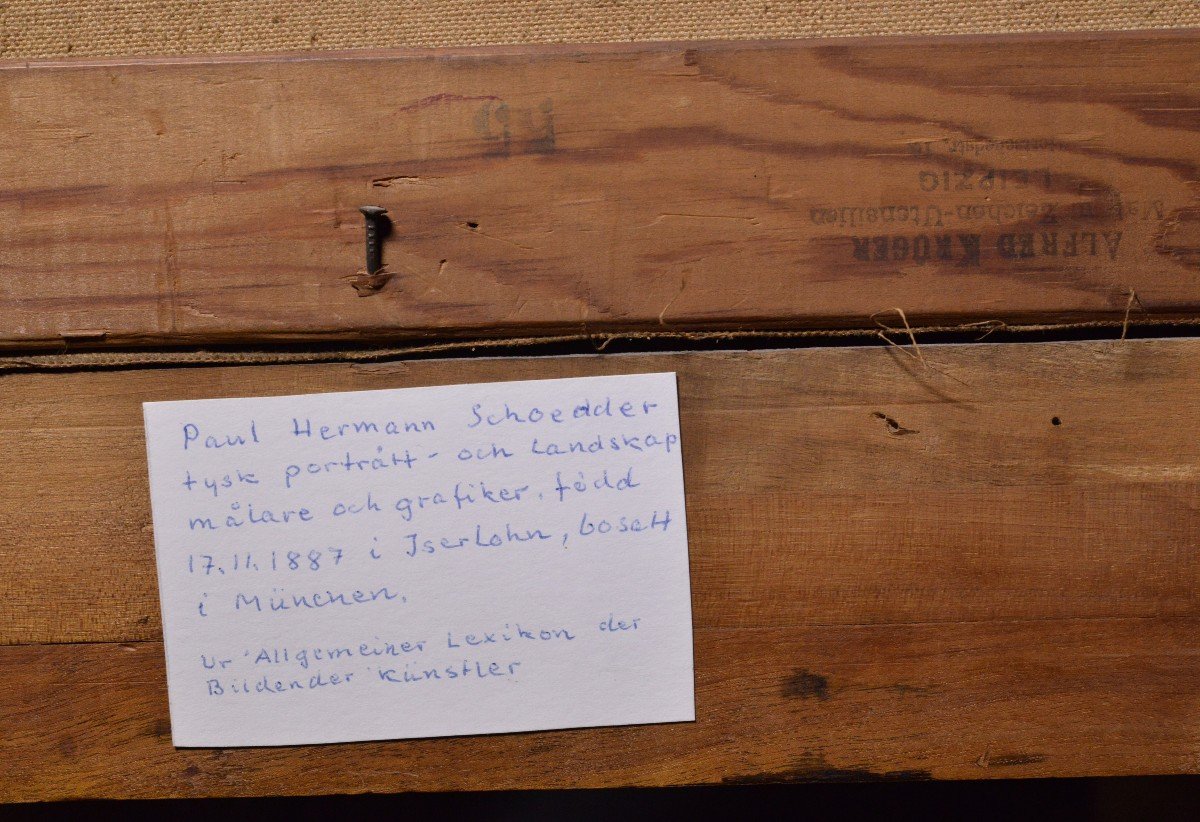 ALFRED KRÜGER
Mal- u. Zeichen-Utensilien
LEIPZIG
Paul Hermann Schoedder
tysk porträtt- och landskap
målare och grafiker. född
17.11.1887 i Iserlohn, bosatt
i München.
Ur "Allgemeiner Lexikon der
Bildender Künstler